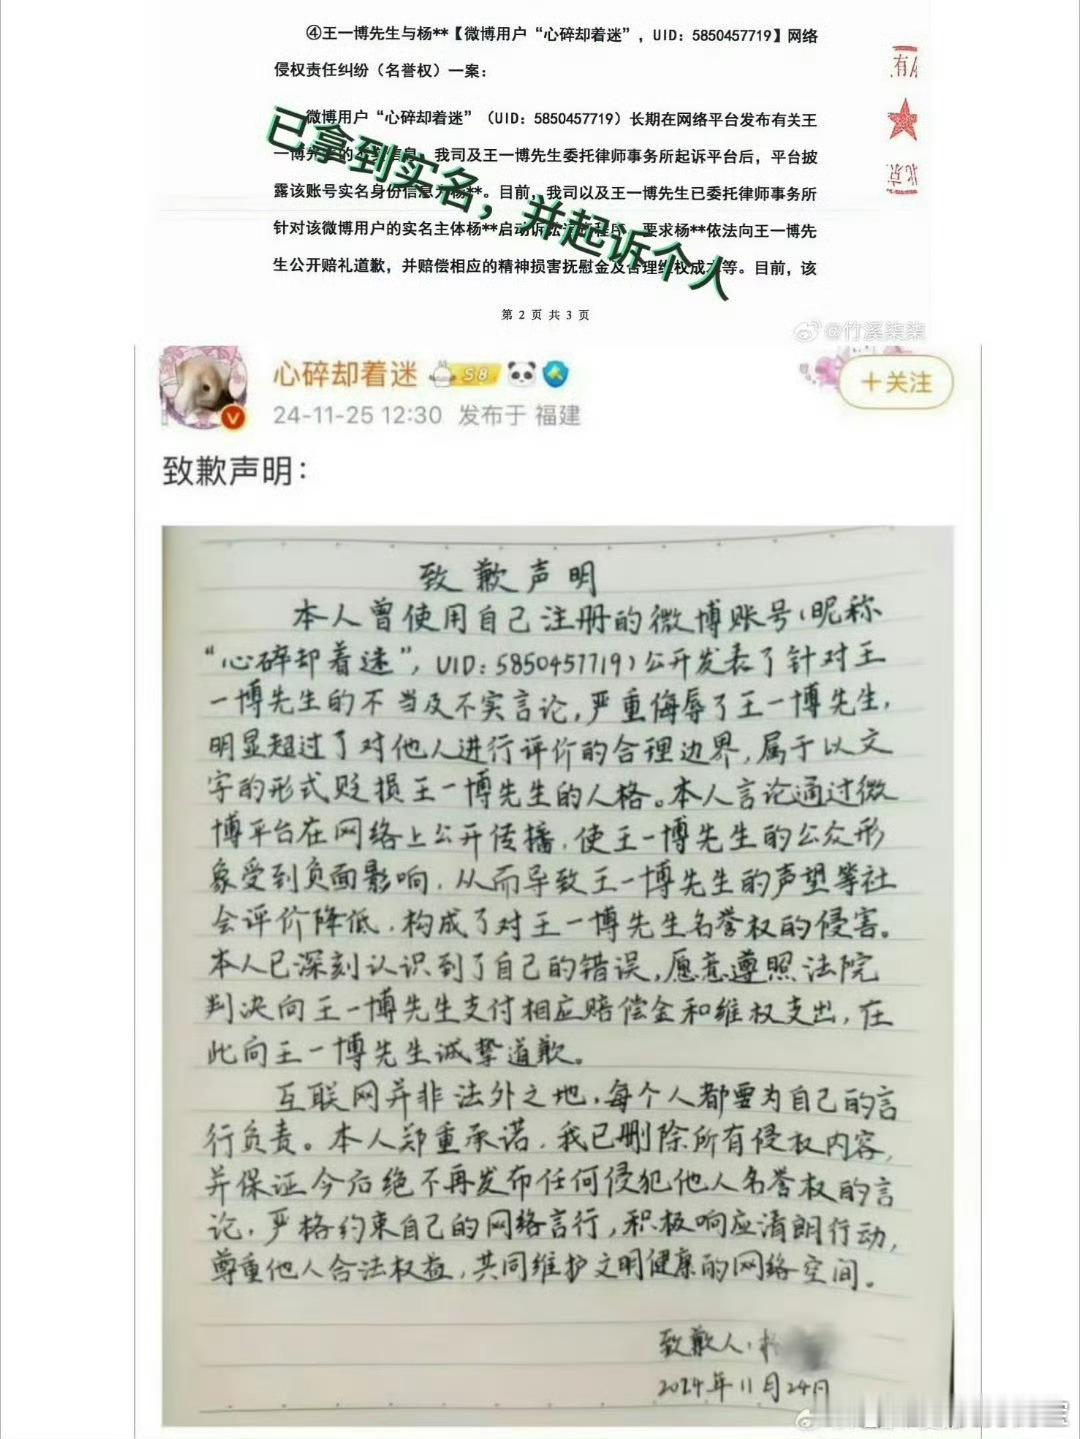 ④王一博先生与杨**【微博用户“心碎却着迷”，UID：5850457719】网络
侵权责任纠纷（名誉权）一案：
微博用户“心碎却着迷”（UID：5850457719）长期在网络平台发布有关王
一博先生的不实信息，我司及王一博先生委托律师事务所起诉平台后，平台披
露该账号实名身份信息为杨**。目前，我司以及王一博先生已委托律师事务所
针对该微博用户的实名主体杨**启动诉讼程序，要求杨**依法向王一博先
生公开赔礼道歉，并赔偿相应的精神损害抚慰金及合理维权成本等。目前，该
已拿到实名，并起诉个人
有
北京
第 2 页 共 3 页
@竹溪柒柒
心碎却着迷 S8
+关注
24-11-25 12:30 发布于 福建
致歉声明：
致歉声明
本人曾使用自己注册的微博账号（昵称
“心碎却着迷”，UID：5850457719）公开发表了针对王
一博先生的不当及不实言论，严重侮辱了王一博先生，
明显超过了对他人进行评价的合理边界，属于以文
字的形式贬损王一博先生的人格。本人言论通过微
博平台在网络上公开传播，使王一博先生的公众形
象受到负面影响，从而导致王一博先生的声望等社
会评价降低，构成了对王一博先生名誉权的侵害。
本人已深刻认识到了自己的错误，愿意遵照法院
判决向王一博先生支付相应赔偿金和维权支出，在
此向王一博先生诚挚道歉。
互联网并非法外之地，每个人都要为自己的言
行负责。本人郑重承诺，我已删除所有侵权内容，
并保证今后绝不再发布任何侵犯他人名誉权的言
论，严格约束自己的网络言行，积极响应清朗行动，
尊重他人合法权益，共同维护文明健康的网络空间。
致歉人：杨
2024年11月24日